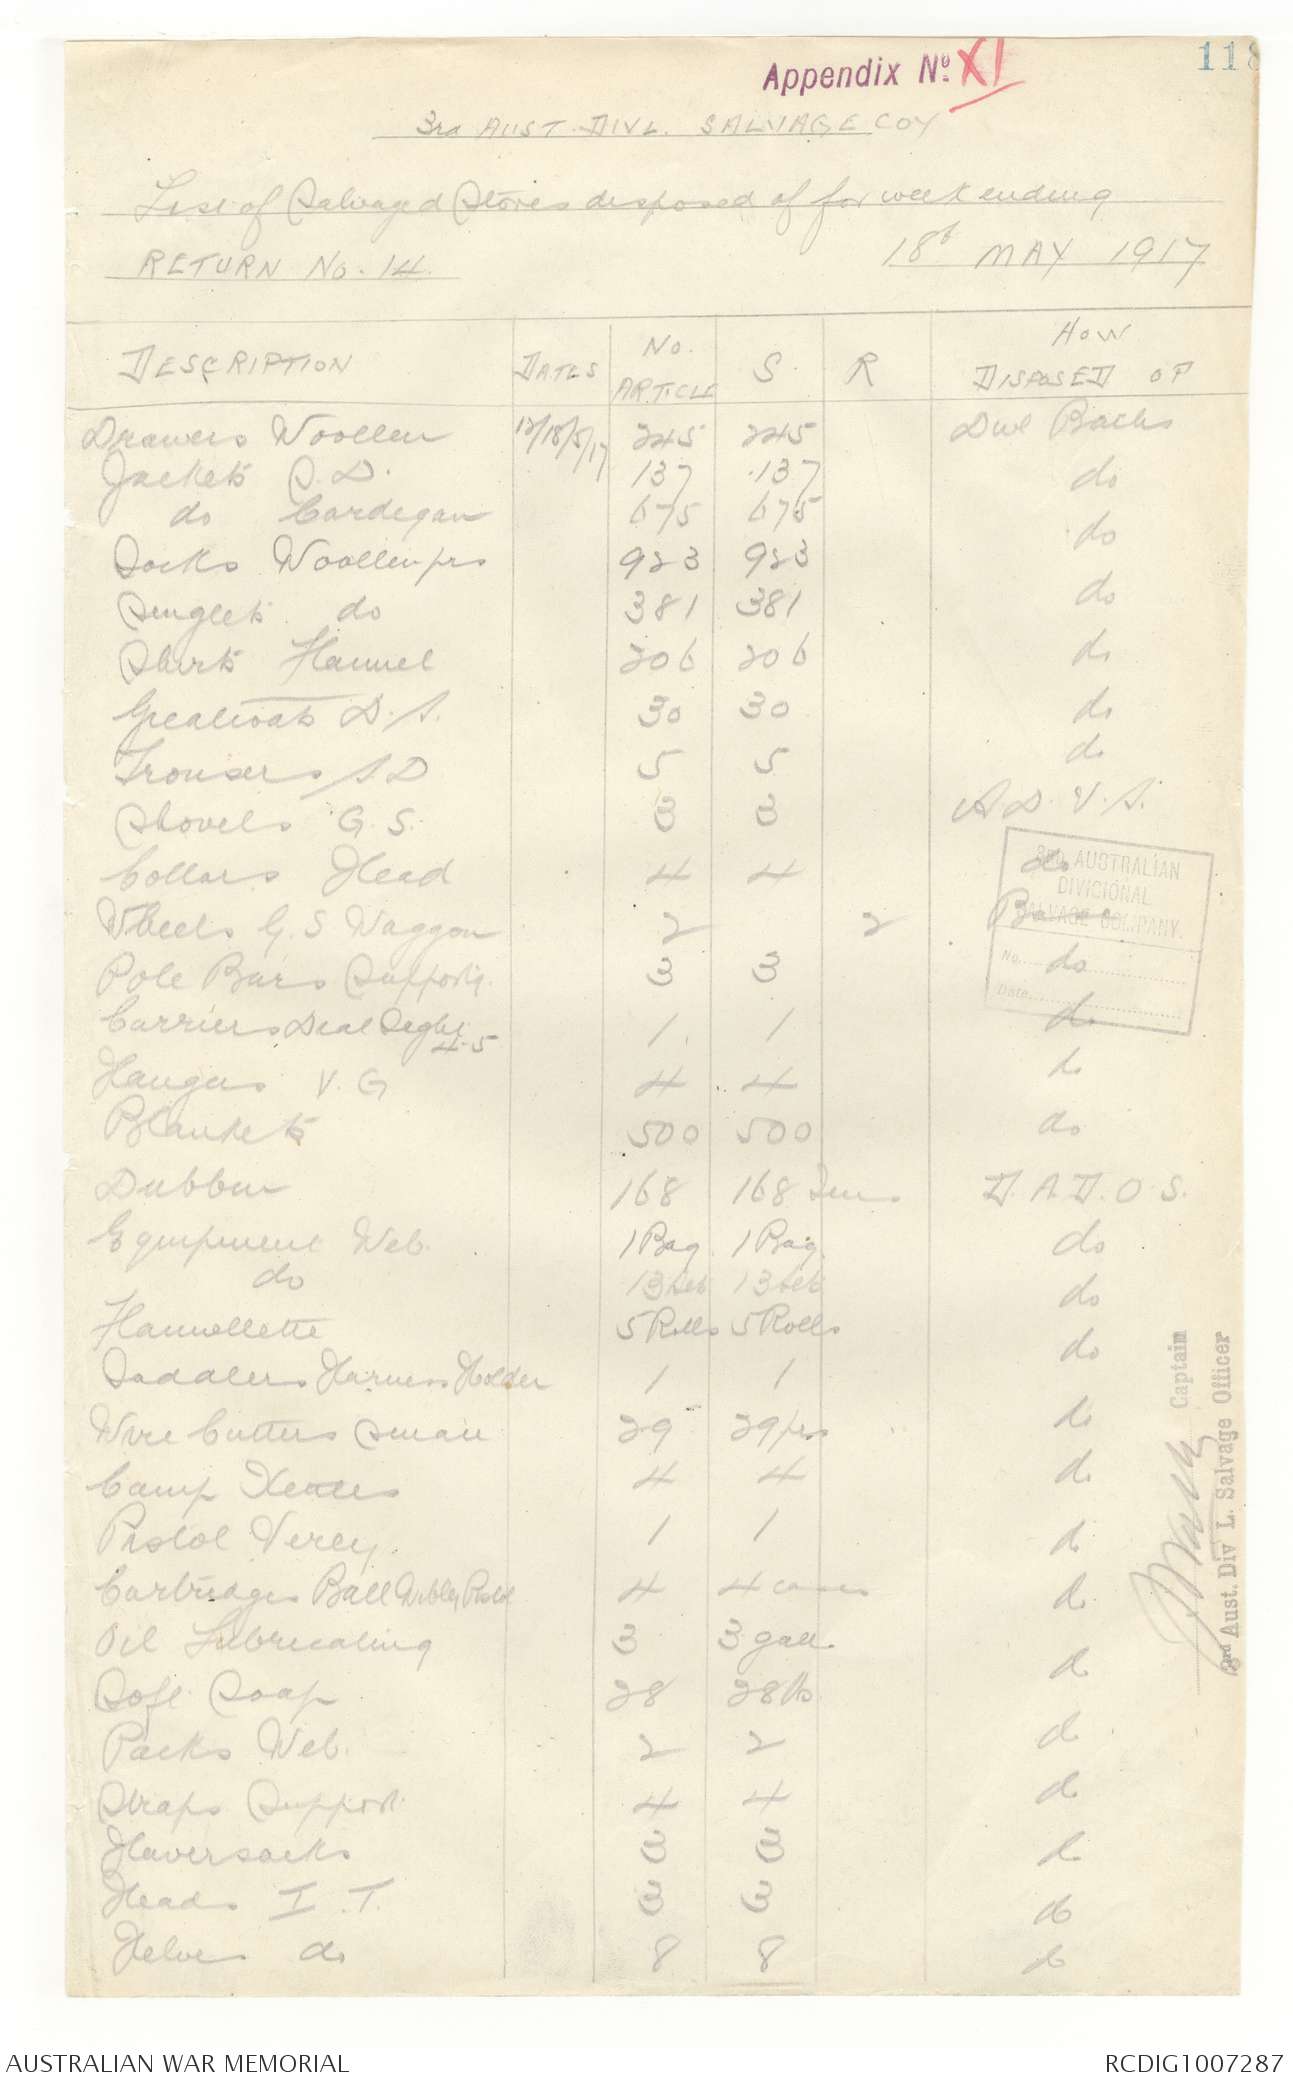 118
Appendix No. XI
3rd AUST. DIVL. SALVAGE COY
List of Salvaged Stores disposed of for week ending
RETURN No. 14. 18th MAY 1917
DESCRIPTION DATES No. ARTICLE S. R HOW DISPOSED OF
Drawers Woollen 12/18/5/17 245 245 Divl Baths
Jackets S.D. 137 137 do
do Cardegan 675 675 do
Socks Woollen prs 923 923 do
Singlets do 381 381 do
Shirts Flannel 206 206 do
Greatcoats D.S. 30 30 do
Trousers S.D 5 5 do
Shovels G.S. 3 3 A.D.V.S.
Collars Head 4 4 do
Wheels G.S Waggon 2 2 Base
Pole Bars Supportg. 3 3 do
Carriers Dial Sight 4.5 1 1 do
Hangers V.G 4 4 do
Blankets 500 500 do
Dubbin 168 168 Tins D.A.D.O.S.
Equipment Web. 1 Bag 1 Bag. do
do 13 sets 13 sets do
Flannellette 5 Rolls 5 Rolls do
Saddlers Harness Holder 1 1 do
Wire Cutters Small 29 29 prs do
Camp Kettles 4 4 do
Pistol Verey. 1 1 do
Cartridges Ball Webley Pistol 4 4 cases do
Oil Lubricating 3 3 gall. do
Soft Soap 28 28 lbs do
Packs Web. 2 2 do
Straps Support. 4 4 do
Haversacks 3 3 do
Heads I.T. 3 3 do
Helves do 8 8 do
3RD AUSTRALIAN
DIVISIONAL
SALVAGE COMPANY.
No.
Date
Captain
3rd Aust. Div L. Salvage Officer
AUSTRALIAN WAR MEMORIAL RCDIG1007287